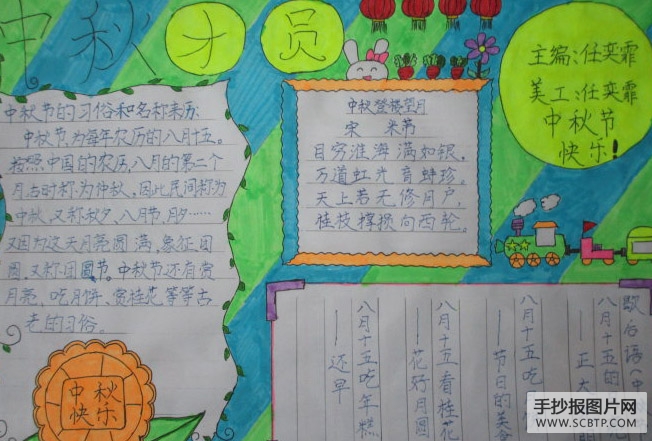 中秋才员
主编:任奕霏
美工:任奕霏
中秋节
快乐!
中秋节的习俗和名称来历:
中秋节,为每年农历的八月十五。
按照中国的农历,八月的第二个
月古时称为仲秋,因此民间称为
中秋,又称秋夕、八月节,月夕……
又因为这天月亮圆满,象征团
圆,又称团圆节。中秋节还有赏
月亮、吃月饼、赏桂花等等古
老的习俗。
中秋登楼望月
宋 米节
目穷淮海满如银,
万道虹光育蚌珍。
天上若无修月户,
桂枝撑损向西轮。
歇后语(中
八月十五的
——正大
八月十五吃
——节日的美
八月十五看桂花
——花好月圆
八月十五吃年糕
——还早
中秋
快乐
手抄报图片网
WWW.SCBTP.COM